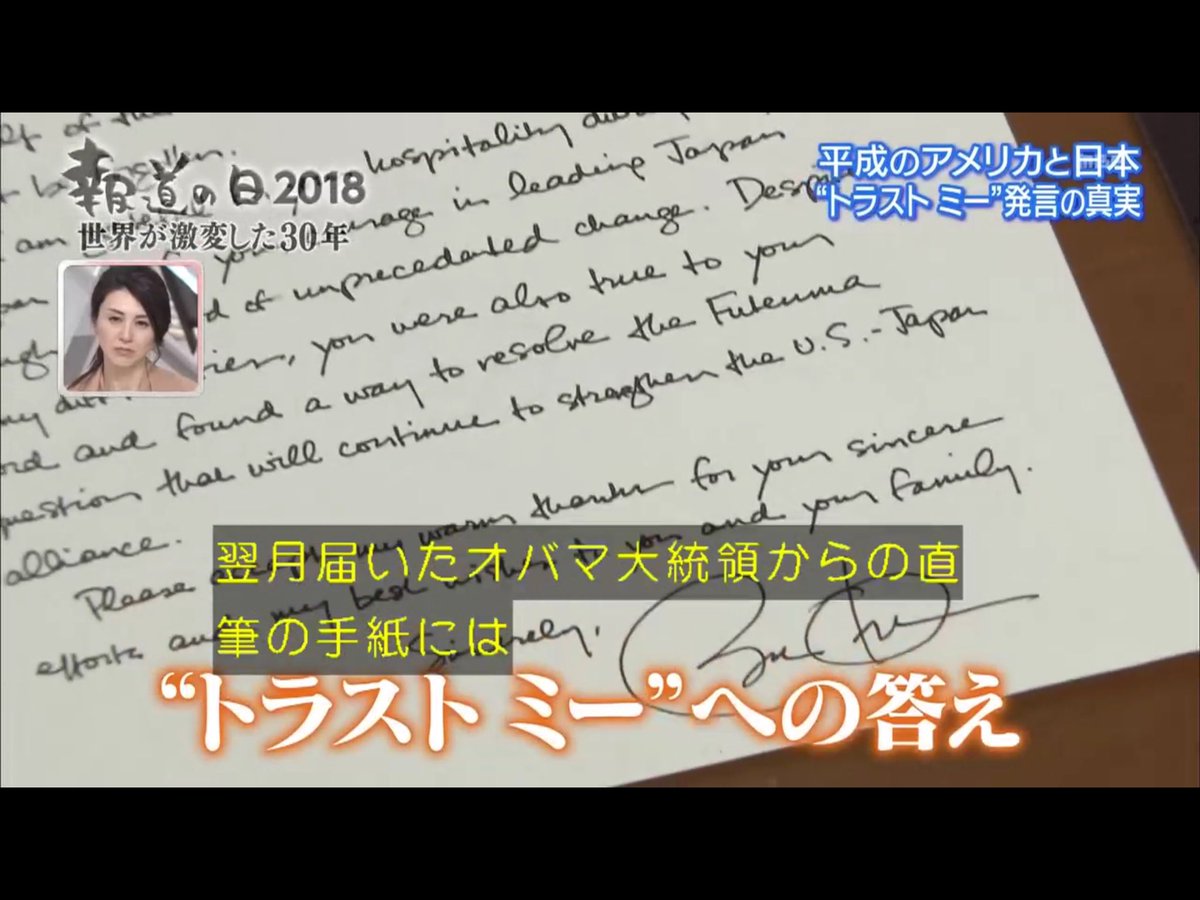 報道の日2018
世界が激変した30年
平成のアメリカと日本
“トラスト ミー”発言の真実
hospitality
courage in leading Japan
of unprecedented change. Despite
you were also true to your
and found a way to resolve the Futenma
question that will continue to strengthen the U.S.-Japan
alliance.
Please my warm thanks for your sincere
efforts and my best wishes to you and your family.
Sincerely,
翌月届いたオバマ大統領からの直
筆の手紙には
“トラスト ミー”への答え